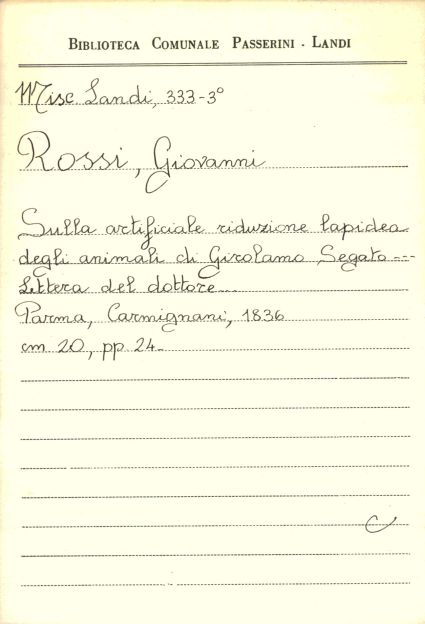 BIBLIOTECA COMUNALE PASSERINI - LANDI
Misc. Landi, 333-3°
Rossi, Giovanni
Sulla artificiale riduzione lapidea
degli animali di Girolamo Segato ---
Lettera del dottore...
Parma, Carmignani, 1836
cm 20, pp 24-
C